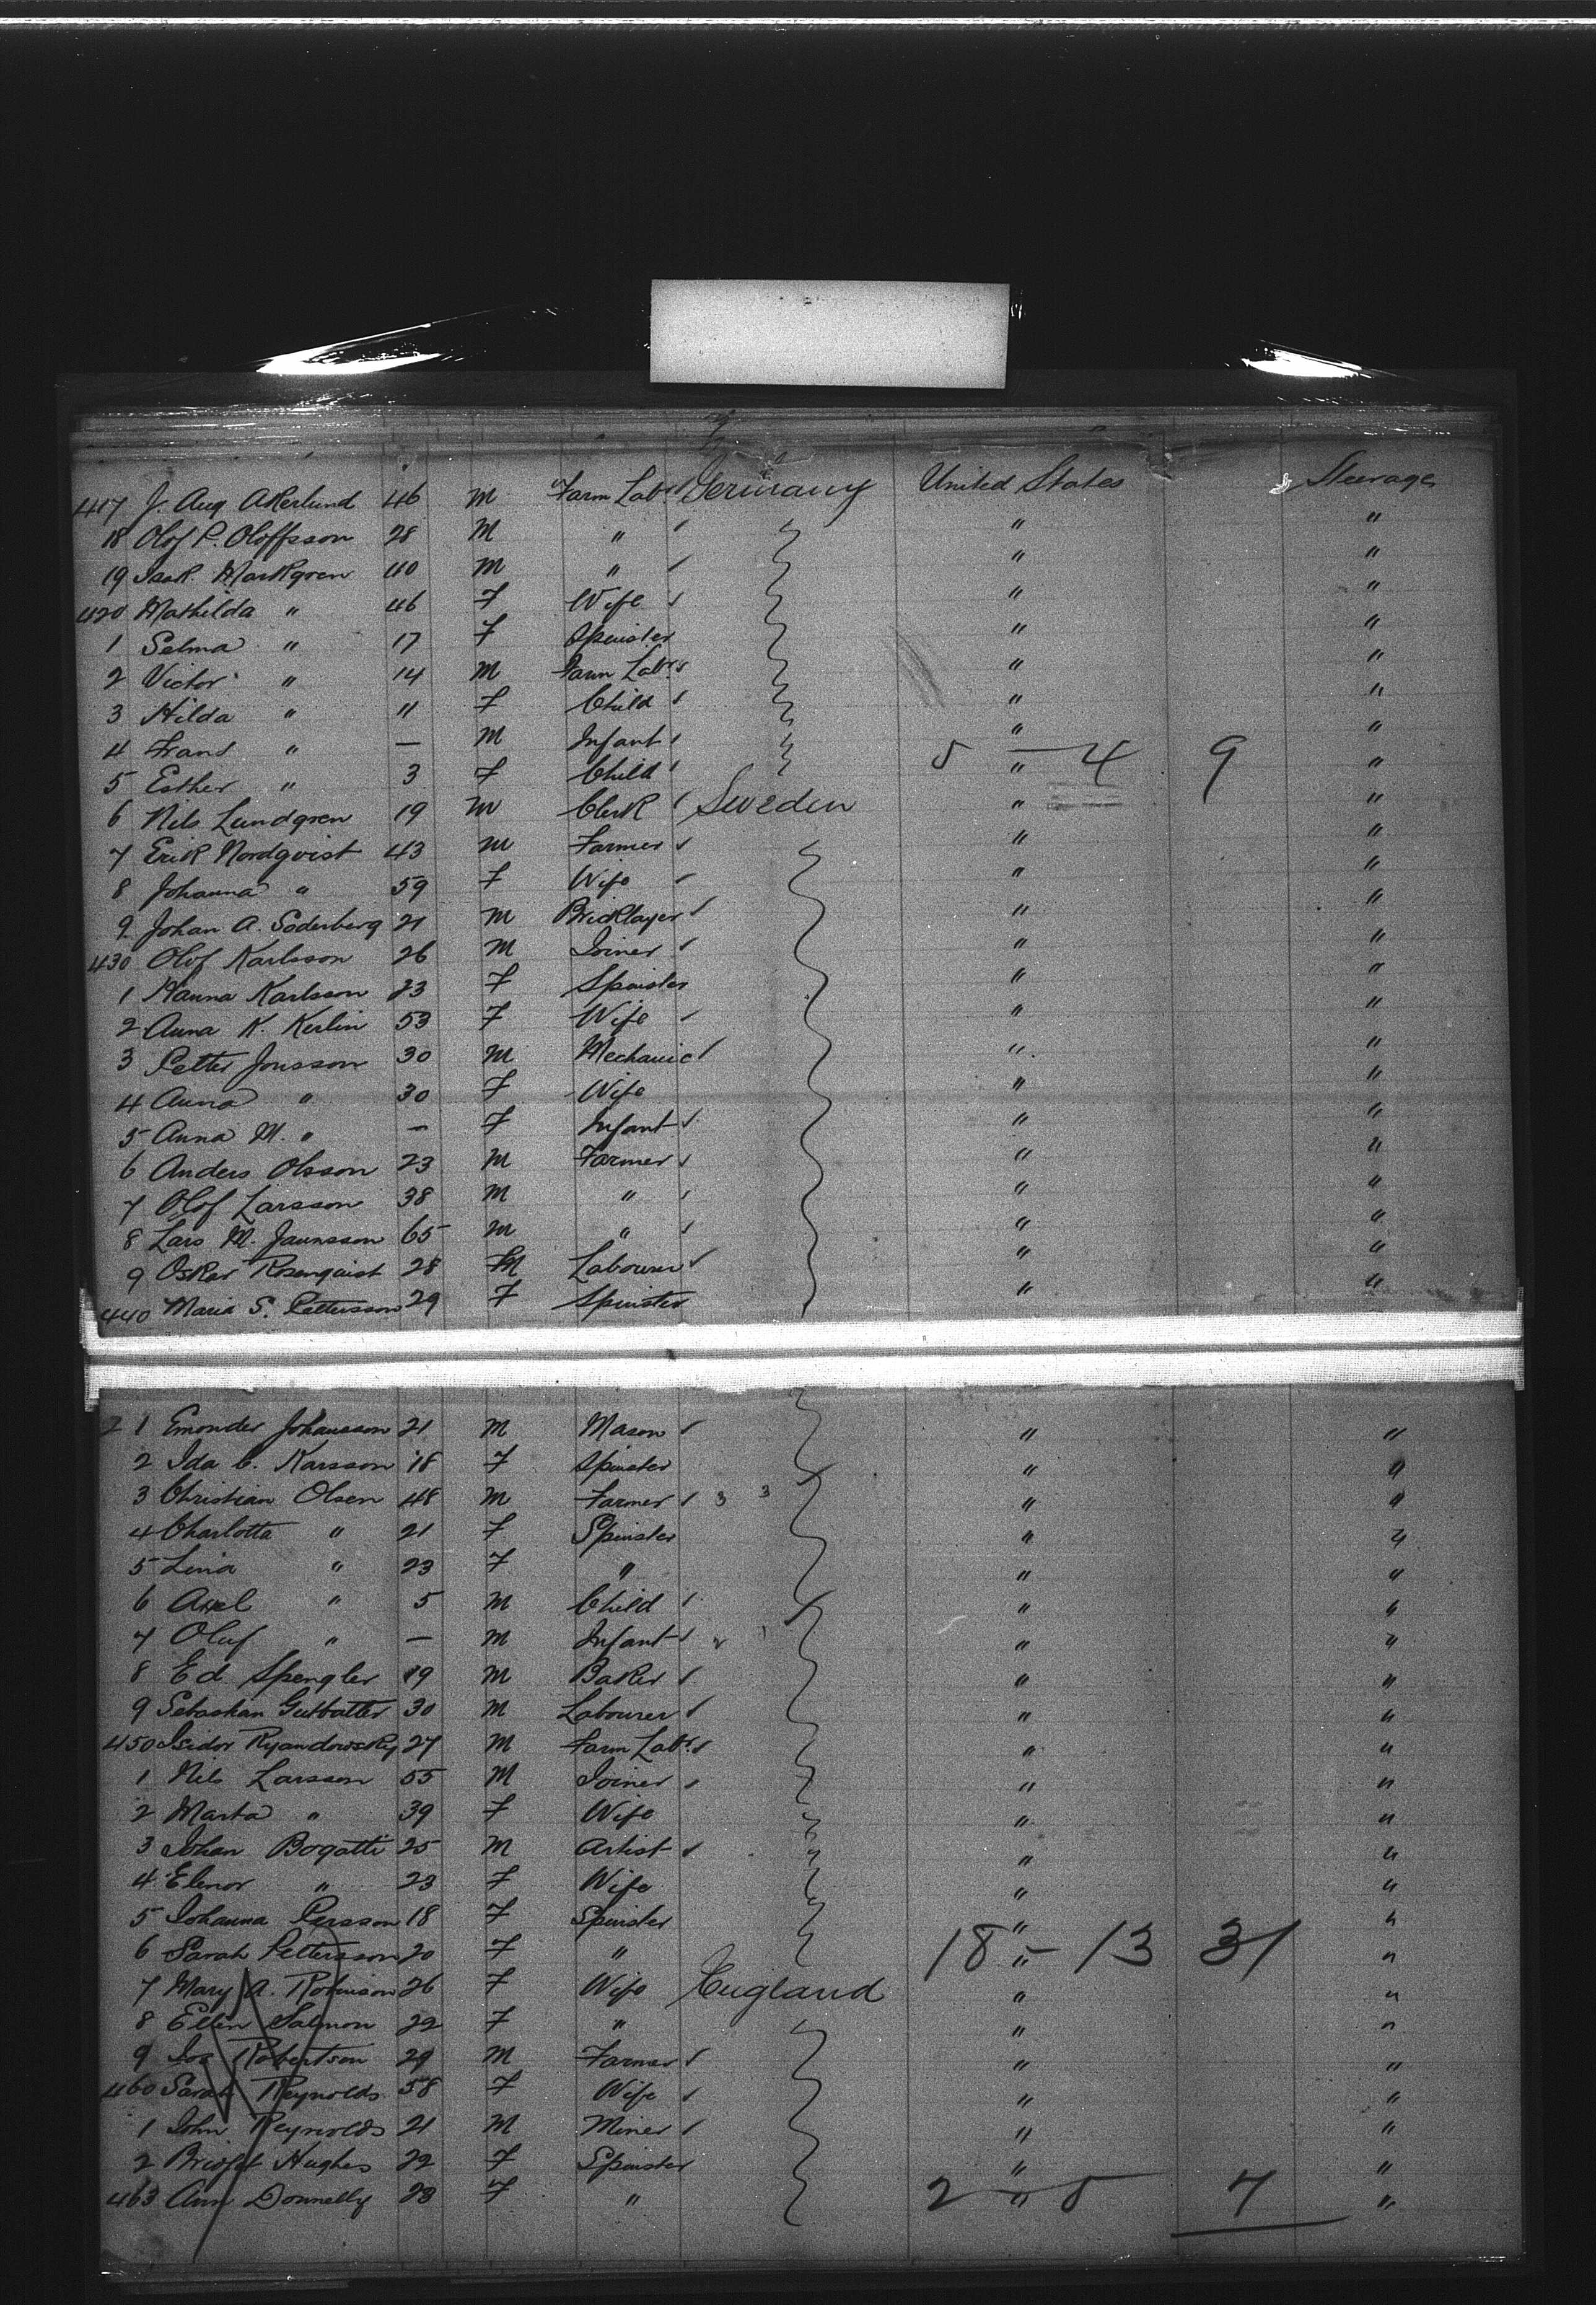 417 J. Aug Akerlund 46 M Farm Labr Germany United States Steerage
18 Olof P. Oloffsson 28 M " " "
19 Isak. Markgren 40 M " " "
420 Mathilda " 46 F Wife " "
1 Selma " 17 F Spinster " "
2 Victor " 14 M Farm Labr " "
3 Hilda " 11 F Child " "
4 Frans " — M Infant " "
5 Esther " 3 F Child " 5 — 4 9 "
6 Nils Lundgren 19 M Clerk Sweden " "
7 Erik Nordqvist 43 M Farmer " "
8 Johanna " 59 F Wife " "
9 Johan A. Soderberg 21 M Bricklayer " "
430 Olof Karlsson 26 M Joiner " "
1 Hanna Karlsson 23 F Spinster " "
2 Anna K. Kerlin 53 F Wife " "
3 Petter Jonsson 30 M Mechanic " "
4 Anna " 30 F Wife " "
5 Anna M. " — F Infant " "
6 Anders Olsson 23 M Farmer " "
7 Olof Larsson 38 M " " "
8 Lars M. Jaunsson 65 M " " "
9 Oskar Rosenquist 28 M Labourer " "
440 Maria S. Pettersson 29 F Spinster " "
1 Emonder Johansson 21 M Mason " "
2 Ida C. Karsson 18 F Spinster " "
3 Christian Olsen 48 M Farmer 3 3 " "
4 Charlotta " 21 F Spinster " "
5 Lina " 23 F " " "
6 Axel " 5 M Child " "
7 Oluf " — M Infant " "
8 Ed Spengler 19 M Baker " "
9 Sebastian Gutbatter 30 M Labourer " "
450 Isidor Ryandowsky 27 M Farm Labr " "
1 Nils Larsson 55 M Joiner " "
2 Marta " 39 F Wife " "
3 Johan Bogatti 25 M Artist " "
4 Elenor " 23 F Wife " "
5 Johanna Persson 18 F Spinster " "
6 Sarah Pettersson 20 F " 18 " — 13 31 "
7 Mary A. Robinson 26 F Wife England " "
8 Ellen Salmon 22 F " " "
9 Jos Robertson 29 M Farmer " "
460 Sarah Reynolds 58 F Wife " "
1 John Reynolds 21 M Miner " "
2 Bridget Hughes 22 F Spinster " "
463 Ann Donnelly 23 F " 2 — " 5 7 "